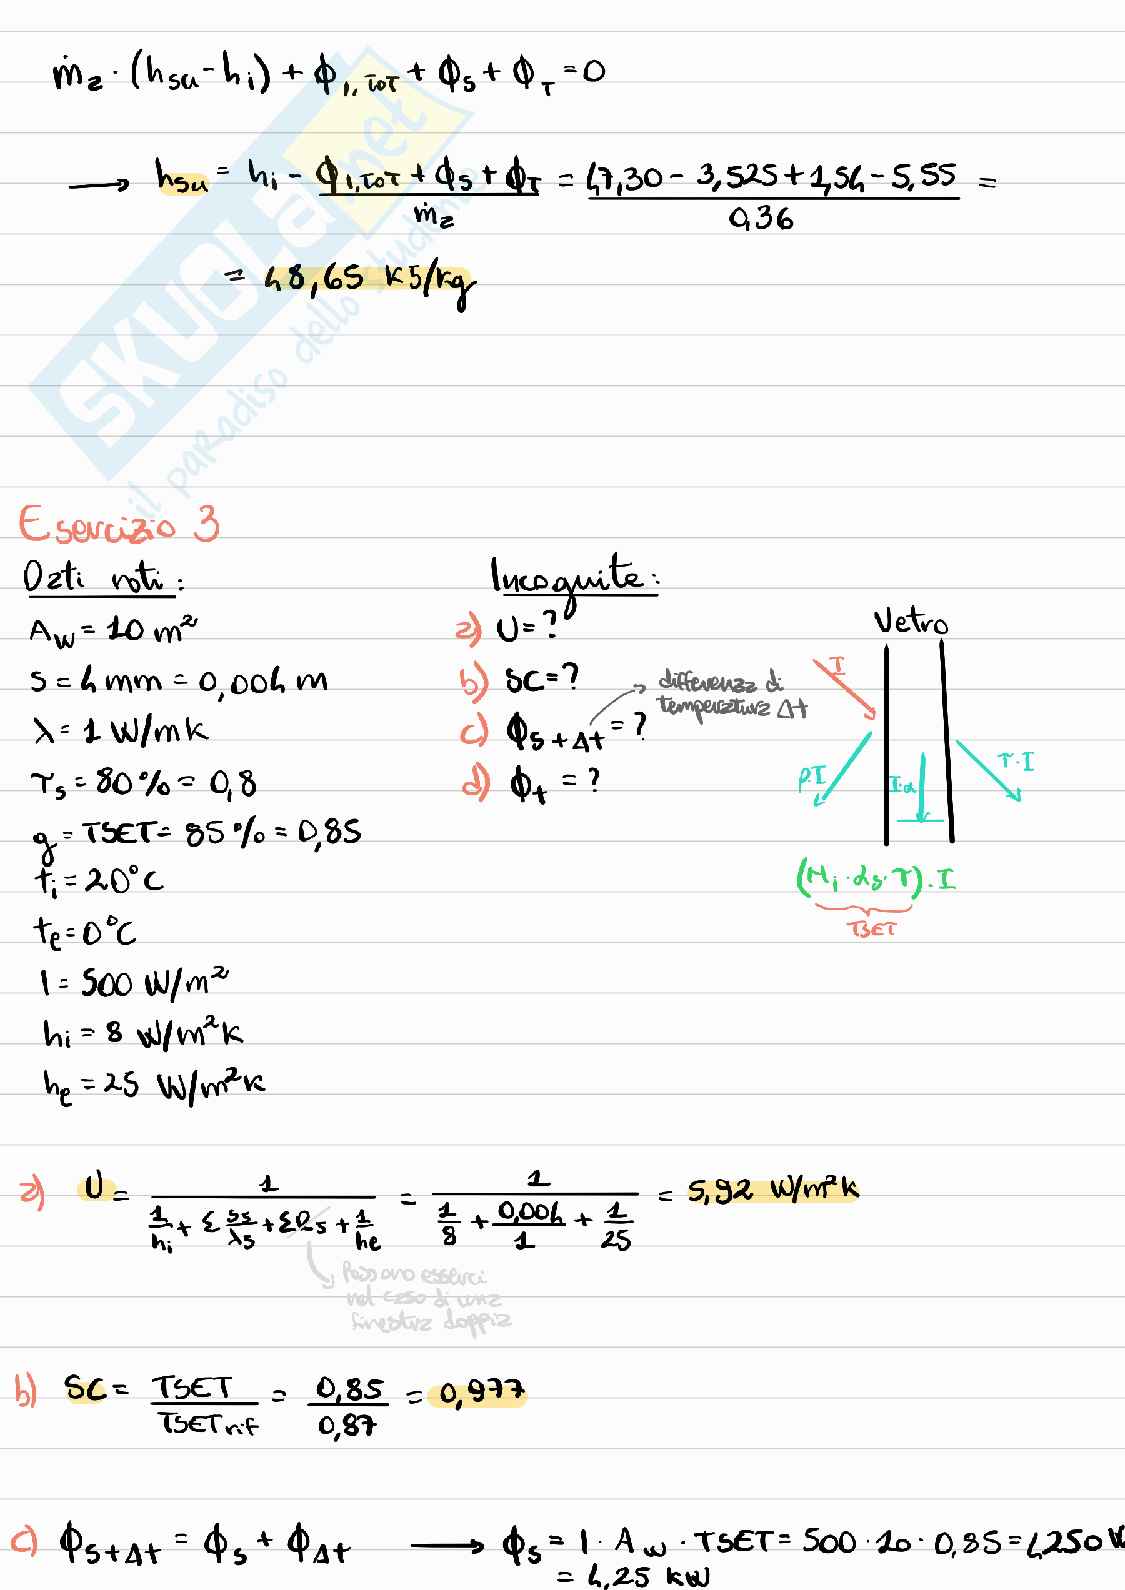 ṁ₂ · (h_su - h_i) + ϕ_1,TOT + ϕ_s + ϕ_T = 0
→ h_su = h_i - (ϕ_1,TOT + ϕ_s + ϕ_T)/ṁ₂ = (47,30 - 3,525 + 1,54 - 5,55)/0,36 =
= 48,65 kJ/kg
SKUOLA.net
il paradiso dello studente
Esercizio 3
Dati noti:
A_w = 10 m²
s = 4 mm = 0,004 m
λ = 1 W/mk
τ_s = 80% = 0,8
g = TSET = 85% = 0,85
t_i = 20°C
t_e = 0°C
I = 500 W/m²
h_i = 8 W/m²k
h_e = 25 W/m²k
Incognite:
a) U = ?
b) SC = ?
c) ϕ_s+Δt = ?
→ differenza di
temperatura Δt
d) ϕ_t = ?
Vetro
I
ρ·I
I·α
τ·I
(N_i · α_s · τ) · I
TSET
a) U = 1/(1/h_i + Σ s_s/λ_s + ΣR_s + 1/h_e) = 1/(1/8 + 0,004/1 + 1/25) = 5,92 W/m²k
Possono esserci
nel caso di una
finestra doppia
b) SC = TSET/TSET_rif = 0,85/0,87 = 0,977
c) ϕ_s+Δt = ϕ_s + ϕ_Δt → ϕ_s = I · A_w · TSET = 500 · 10 · 0,85 = 4250 W
= 4,25 kW